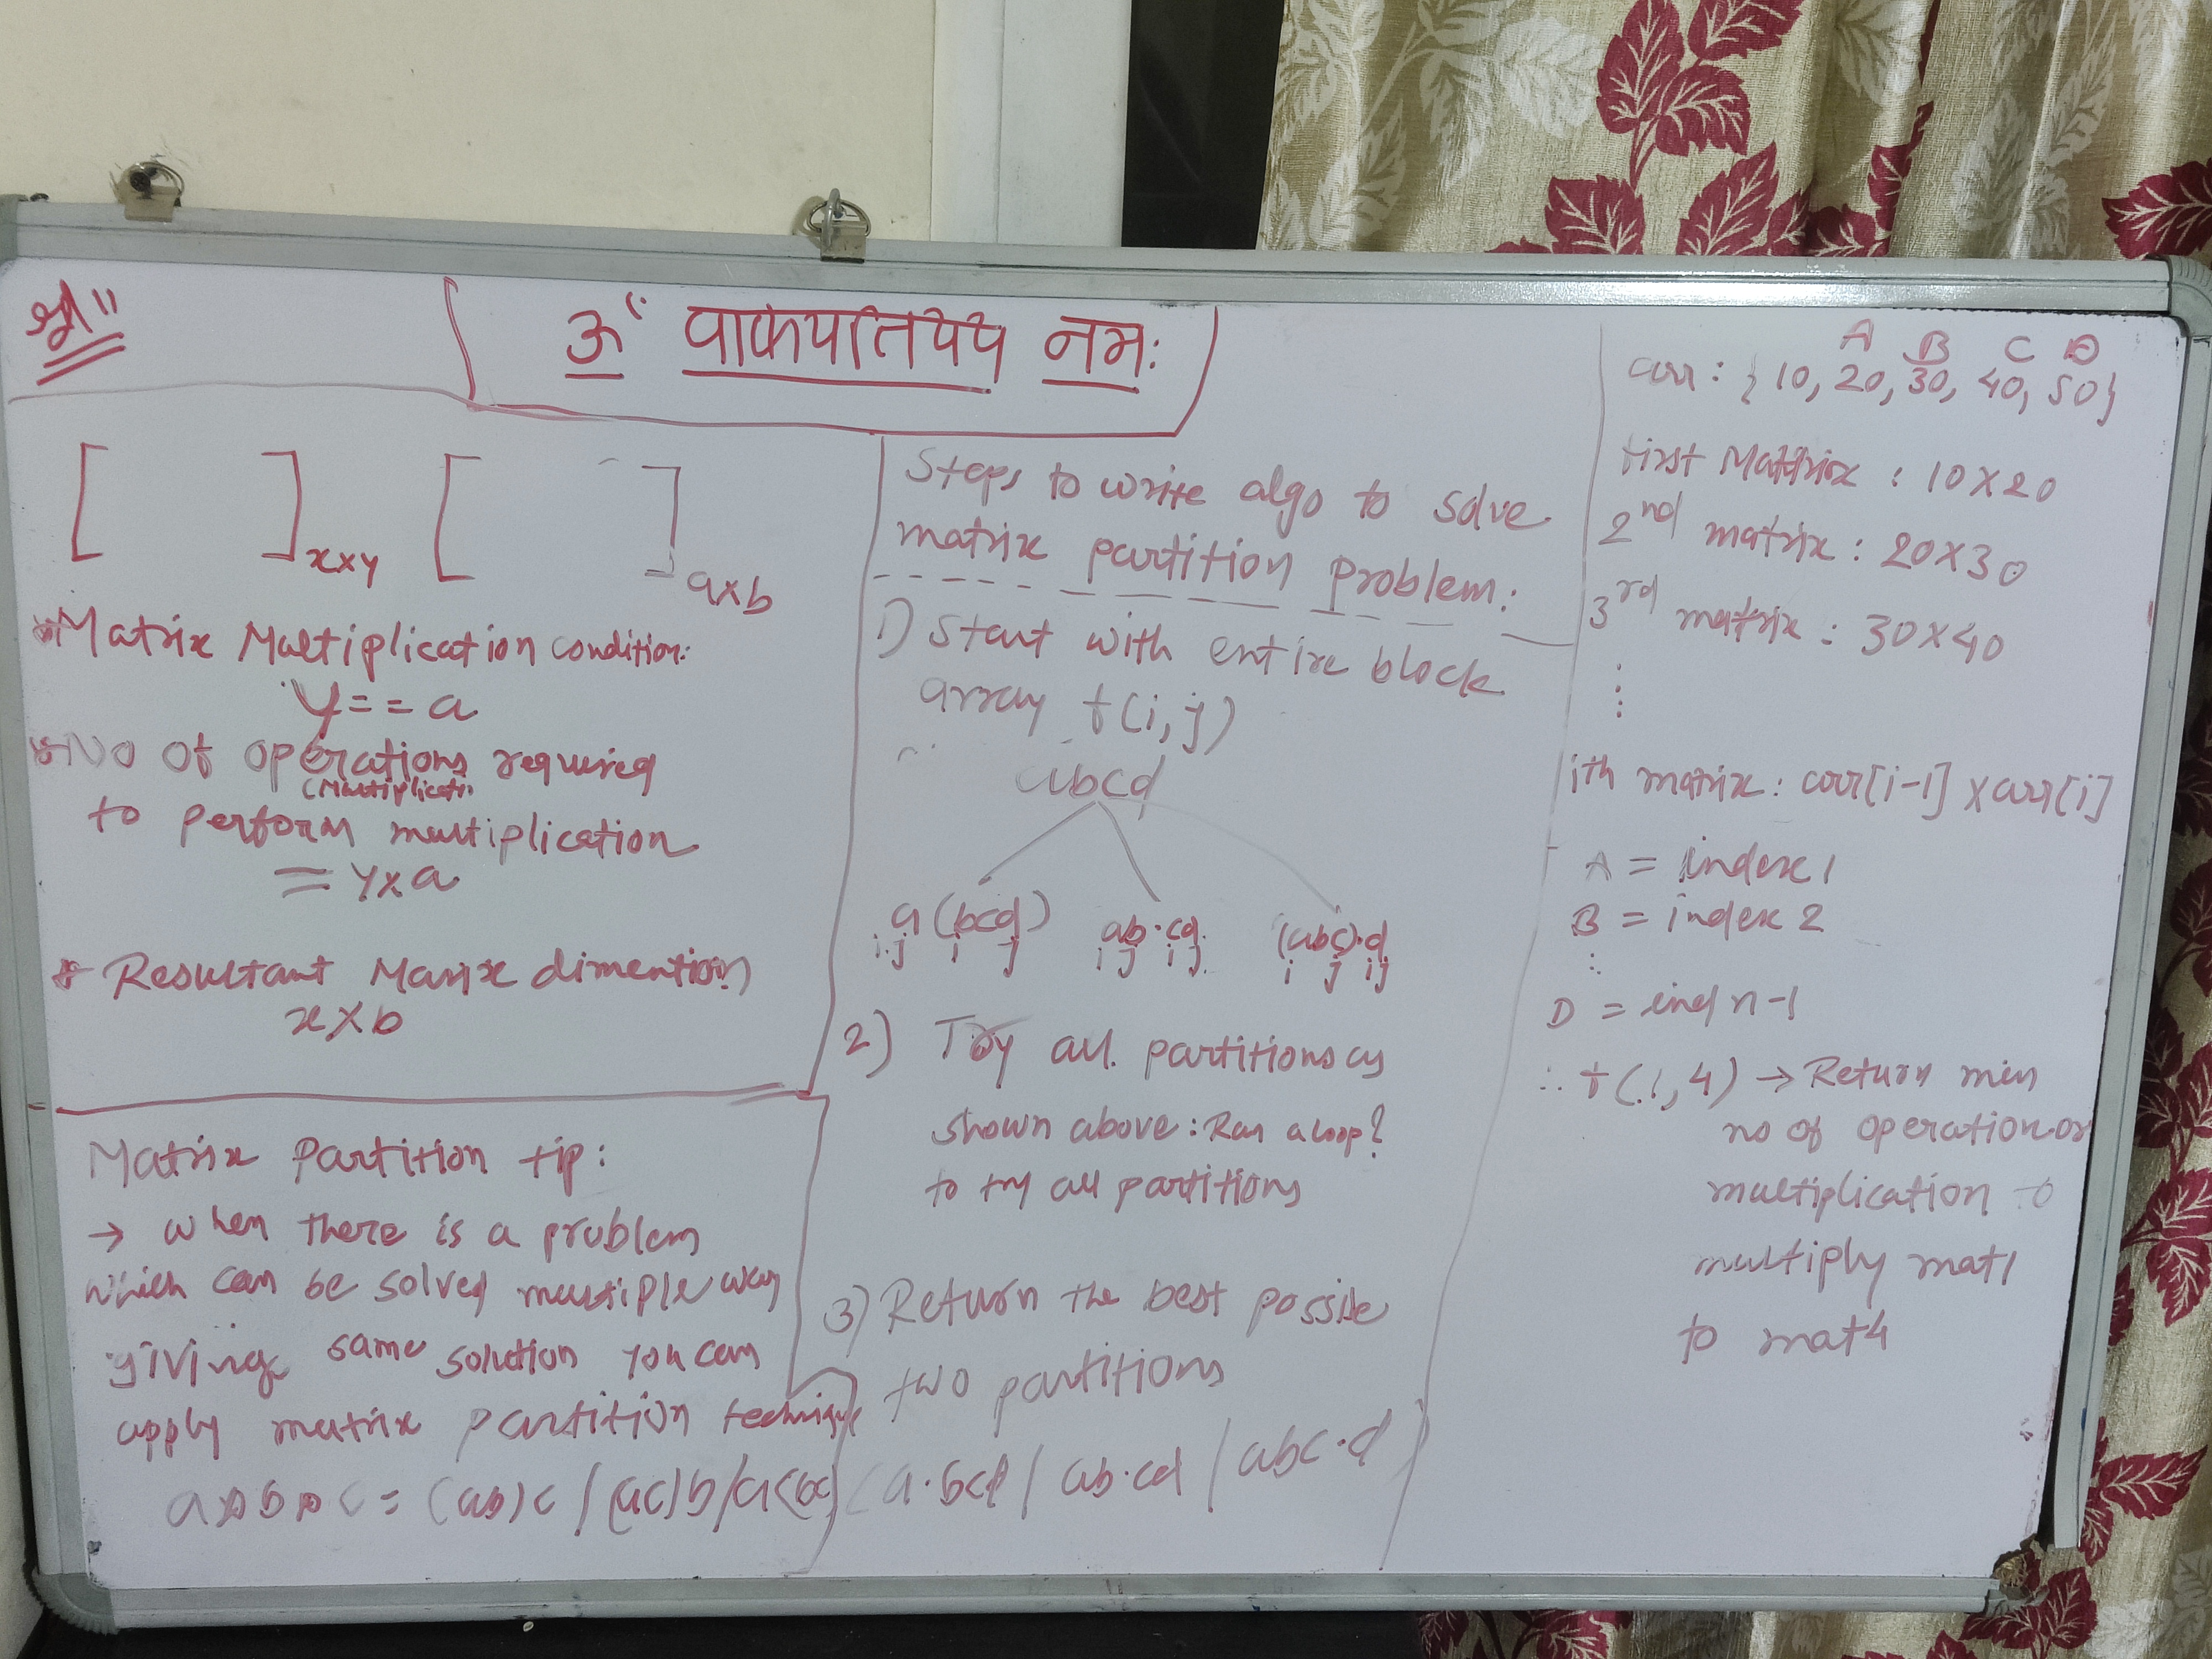 श्री॥
ॐ वाकपतियेय नमः
[ ] x×y [ ] a×b
* Matrix Multiplication condition:
y == a
* No of operations required
(Multiplicati.
to perform multiplication
= y×a
* Resultant Marix dimention
x×b
Matrix Partition tip:
→ when there is a problem
which can be solved multiple way
giving same solution you can
apply matrix partition technique
= (ab)c / (ac)b / a(bc) (a.bcd / ab.cd / abc.d)
Steps to write algo to solve
matrix partition problem:
1) Start with entire block
array f(i,j)
abcd
a(bcd) ab.cd (abc).d
i j i j i j i j i j i j
2) Try all. partitions as
shown above: Run a loop?
to try all partitions
3) Return the best possile
two partitions
A B C D
arr: {10, 20, 30, 40, 50}
first Mattrix : 10×20
2nd matrix : 20×30
3rd matrix : 30×40
ith matrix: arr[i-1] × arr[i]
A = index 1
B = index 2
D = ind n-1
∴ f(1,4) → Return min
no of operation or
multiplication to
multiply mat1
to mat4